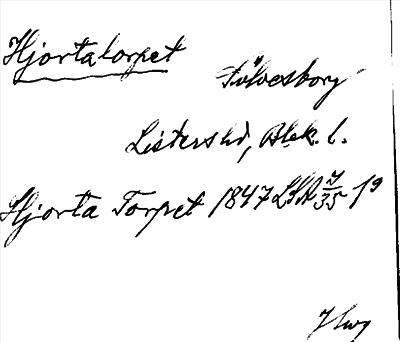 Hjortatorpet
Sölvesborg
Listers hd, Blek. l.
Hjorta Torpet 1847 LSA 7/35 19